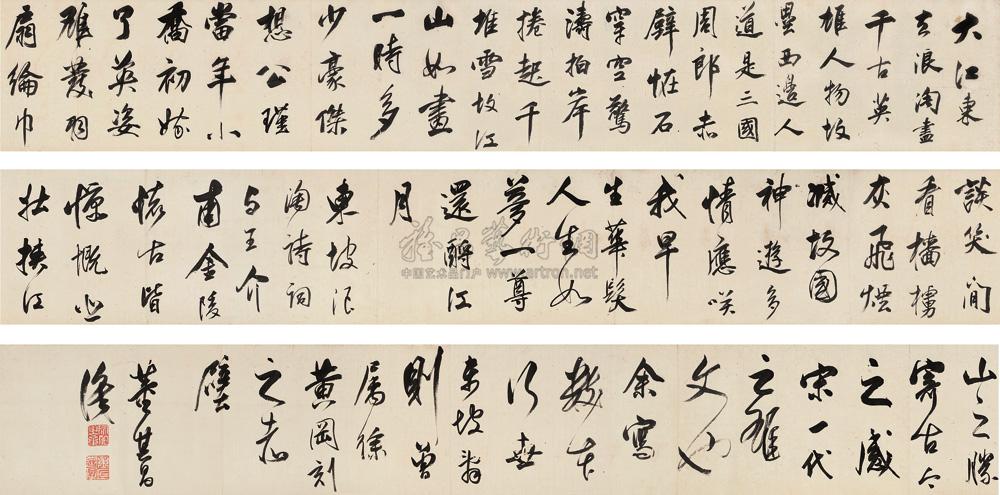 大江東
去浪淘盡
千古英
雄人物故
壘西邊人
道是三國
周郎赤
壁恠石
穿空驚
濤拍岸
捲起千
堆雪故江
山如畫
一時多
少豪傑
想公瑾
當年小
喬初嫁
了英姿
雄發羽
扇綸巾
談笑間
看檣櫓
灰飛煙
滅故國
神遊多
情應咲
我早
生華髮
人生如
夢一尊
還酹江
月
東坡浪
淘詩詞
与王介
甫金陵
懷古皆
慷慨悲
壯挾江
山之勝
寄古今
之感
宋一代
之雄
文也
余寫
數本
行世
東坡翁
則曾
屬徐
黃岡刻
之赤
壁
董其昌
識
中国艺术品门户 www.artron.net